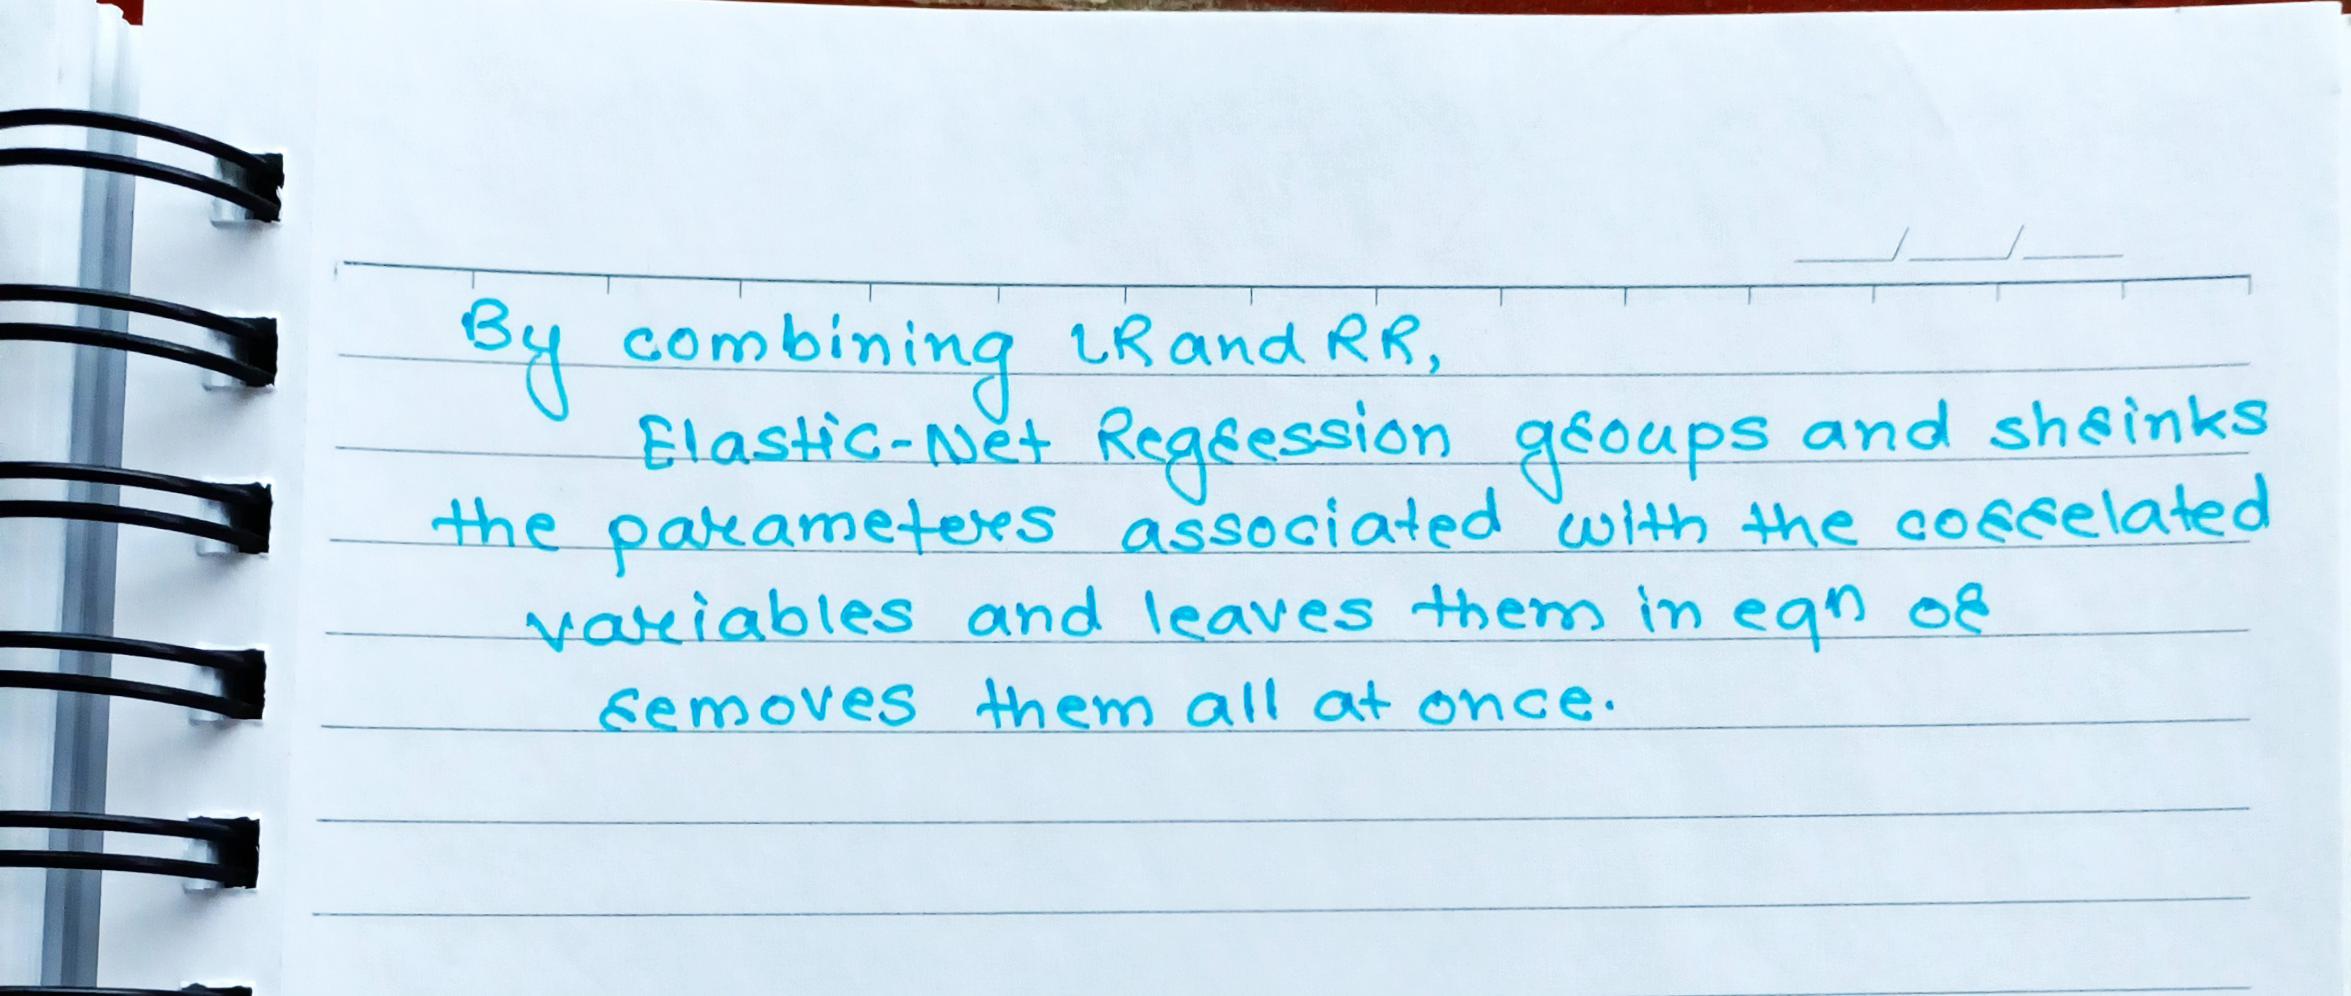 By combining LR and RR,
Elastic-Net Regression groups and shrinks
the parameters associated with the correlated
variables and leaves them in eqn or
removes them all at once.